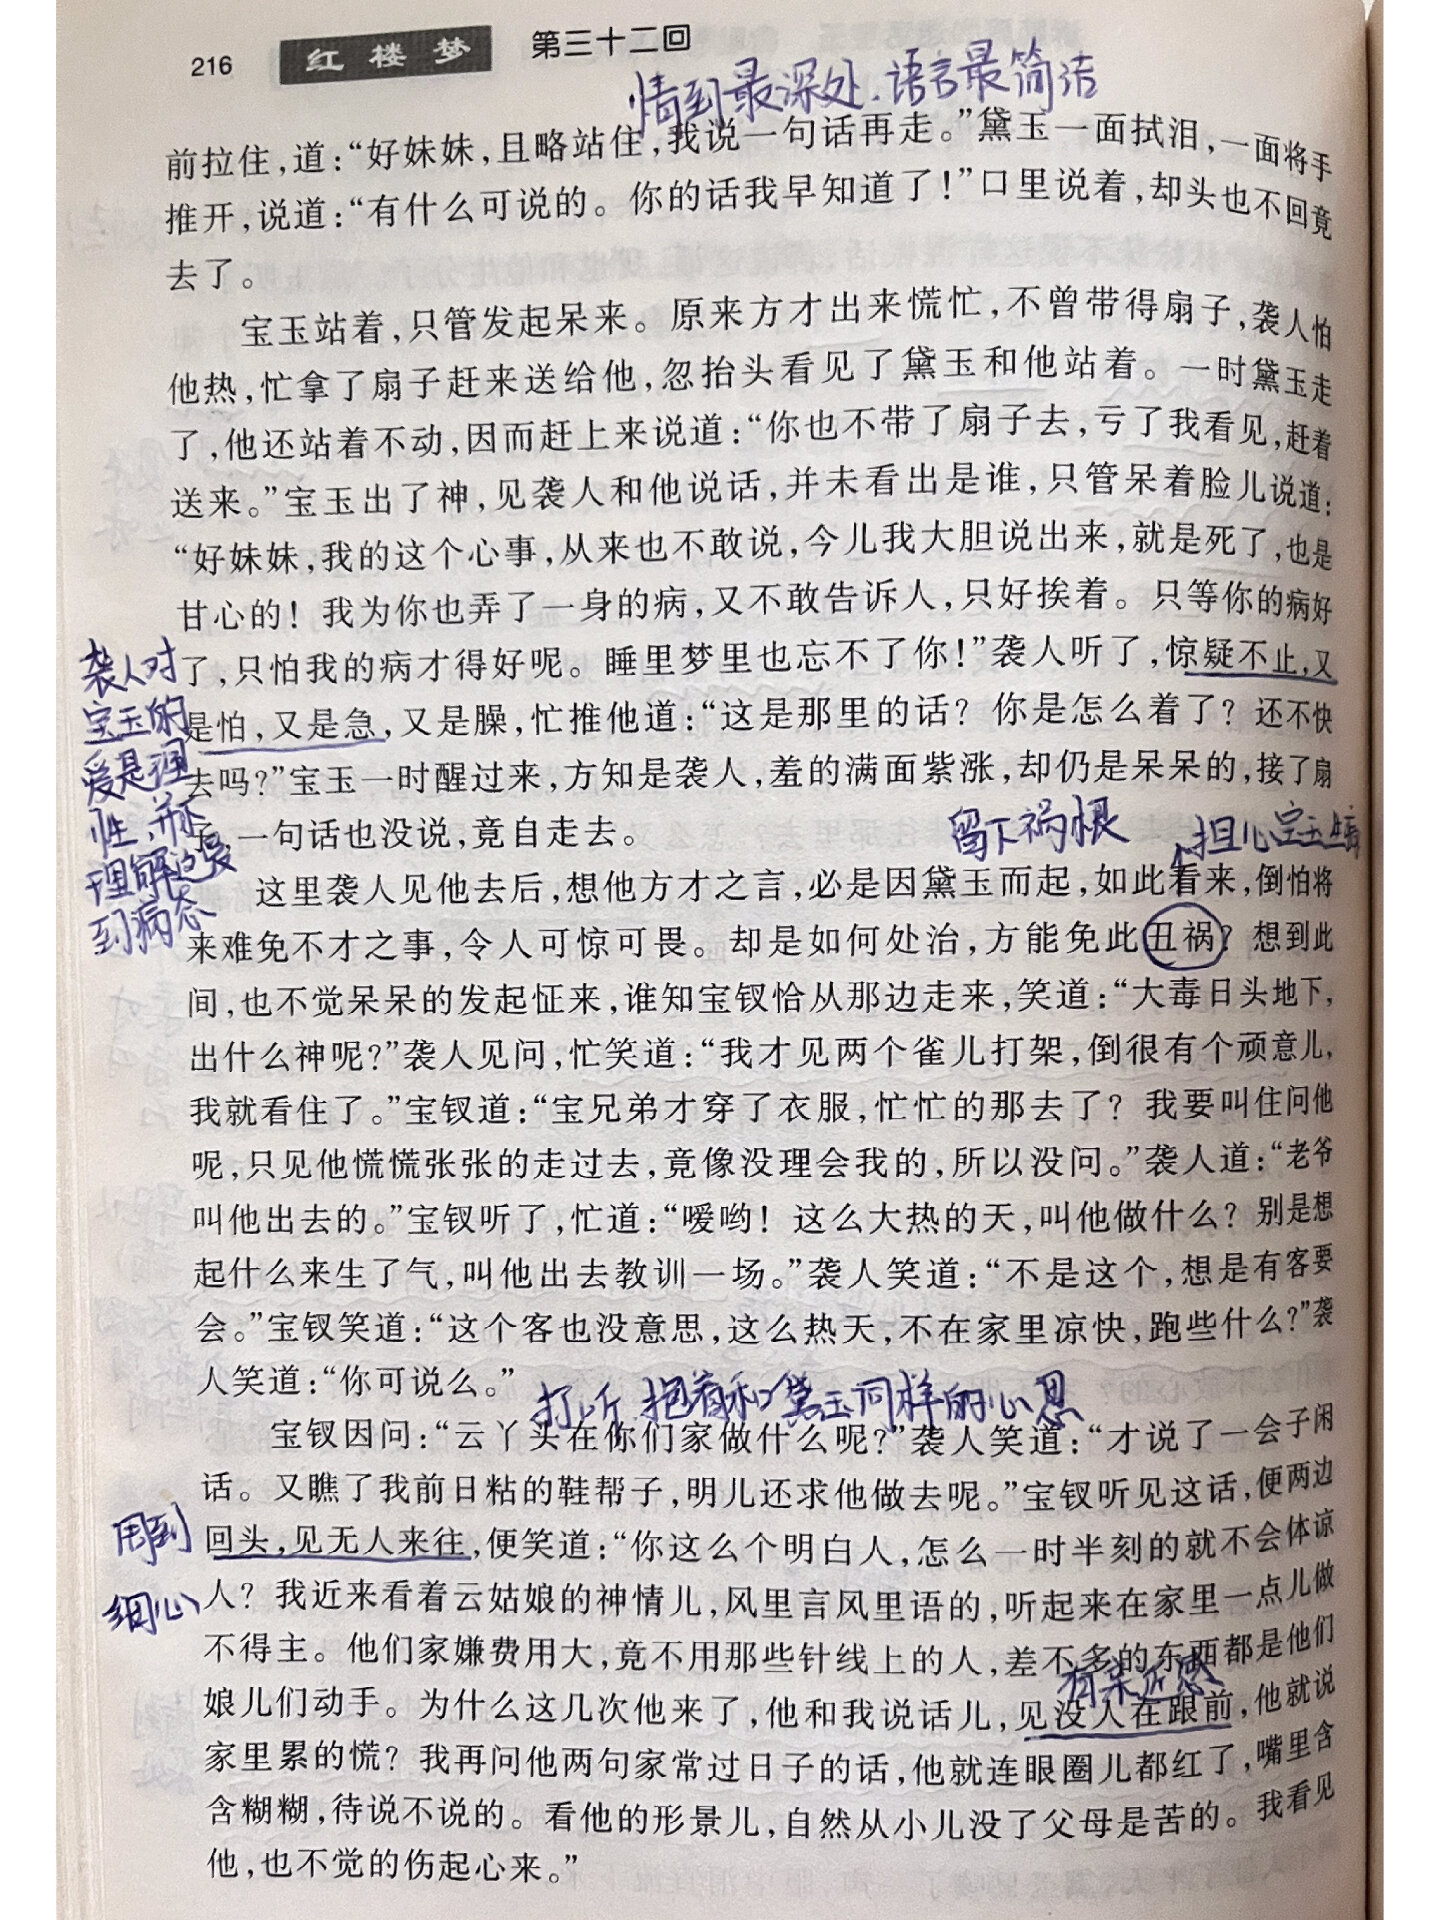 216 红楼梦 第三十二回
情到最深处.语言最简洁
前拉住,道:“好妹妹,且略站住,我说一句话再走。”黛玉一面拭泪,一面将手
推开,说道:“有什么可说的。你的话我早知道了!”口里说着,却头也不回竟
去了。
宝玉站着,只管发起呆来。原来方才出来慌忙,不曾带得扇子,袭人怕
他热,忙拿了扇子赶来送给他,忽抬头看见了黛玉和他站着。一时黛玉走
了,他还站着不动,因而赶上来说道:“你也不带了扇子去,亏了我看见,赶着
送来。”宝玉出了神,见袭人和他说话,并未看出是谁,只管呆着脸儿说道:
“好妹妹,我的这个心事,从来也不敢说,今儿我大胆说出来,就是死了,也是
甘心的! 我为你也弄了一身的病,又不敢告诉人,只好挨着。只等你的病好
了,只怕我的病才得好呢。睡里梦里也忘不了你!”袭人听了,惊疑不止,又
是怕,又是急,又是臊,忙推他道:“这是那里的话? 你是怎么着了? 还不快
去吗?”宝玉一时醒过来,方知是袭人,羞的满面紫涨,却仍是呆呆的,接了扇
子,一句话也没说,竟自走去。
袭人对
宝玉的
爱是理
性,并不
理解这爱
到病态
留下祸根
担心宝玉
这里袭人见他去后,想他方才之言,必是因黛玉而起,如此看来,倒怕将
来难免不才之事,令人可惊可畏。却是如何处治,方能免此丑祸? 想到此
间,也不觉呆呆的发起怔来,谁知宝钗恰从那边走来,笑道:“大毒日头地下,
出什么神呢?”袭人见问,忙笑道:“我才见两个雀儿打架,倒很有个顽意儿,
我就看住了。”宝钗道:“宝兄弟才穿了衣服,忙忙的那去了? 我要叫住问他
呢,只见他慌慌张张的走过去,竟像没理会我的,所以没问。”袭人道:“老爷
叫他出去的。”宝钗听了,忙道:“嗳哟! 这么大热的天,叫他做什么? 别是想
起什么来生了气,叫他出去教训一场。”袭人笑道:“不是这个,想是有客要
会。”宝钗笑道:“这个客也没意思,这么热天,不在家里凉快,跑些什么?”袭
人笑道:“你可说么。”
打听.抱着和黛玉同样的心思
宝钗因问:“云丫头在你们家做什么呢?”袭人笑道:“才说了一会子闲
话。又瞧了我前日粘的鞋帮子,明儿还求他做去呢。”宝钗听见这话,便两边
回头,见无人来往,便笑道:“你这么个明白人,怎么一时半刻的就不会体谅
人? 我近来看着云姑娘的神情儿,风里言风里语的,听起来在家里一点儿做
不得主。他们家嫌费用大,竟不用那些针线上的人,差不多的东西都是他们
娘儿们动手。为什么这几次他来了,他和我说话儿,见没人在跟前,他就说
家里累的慌? 我再问他两句家常过日子的话,他就连眼圈儿都红了,嘴里含
含糊糊,待说不说的。看他的形景儿,自然从小儿没了父母是苦的。我看见
他,也不觉的伤起心来。”
周到
细心
有亲近感